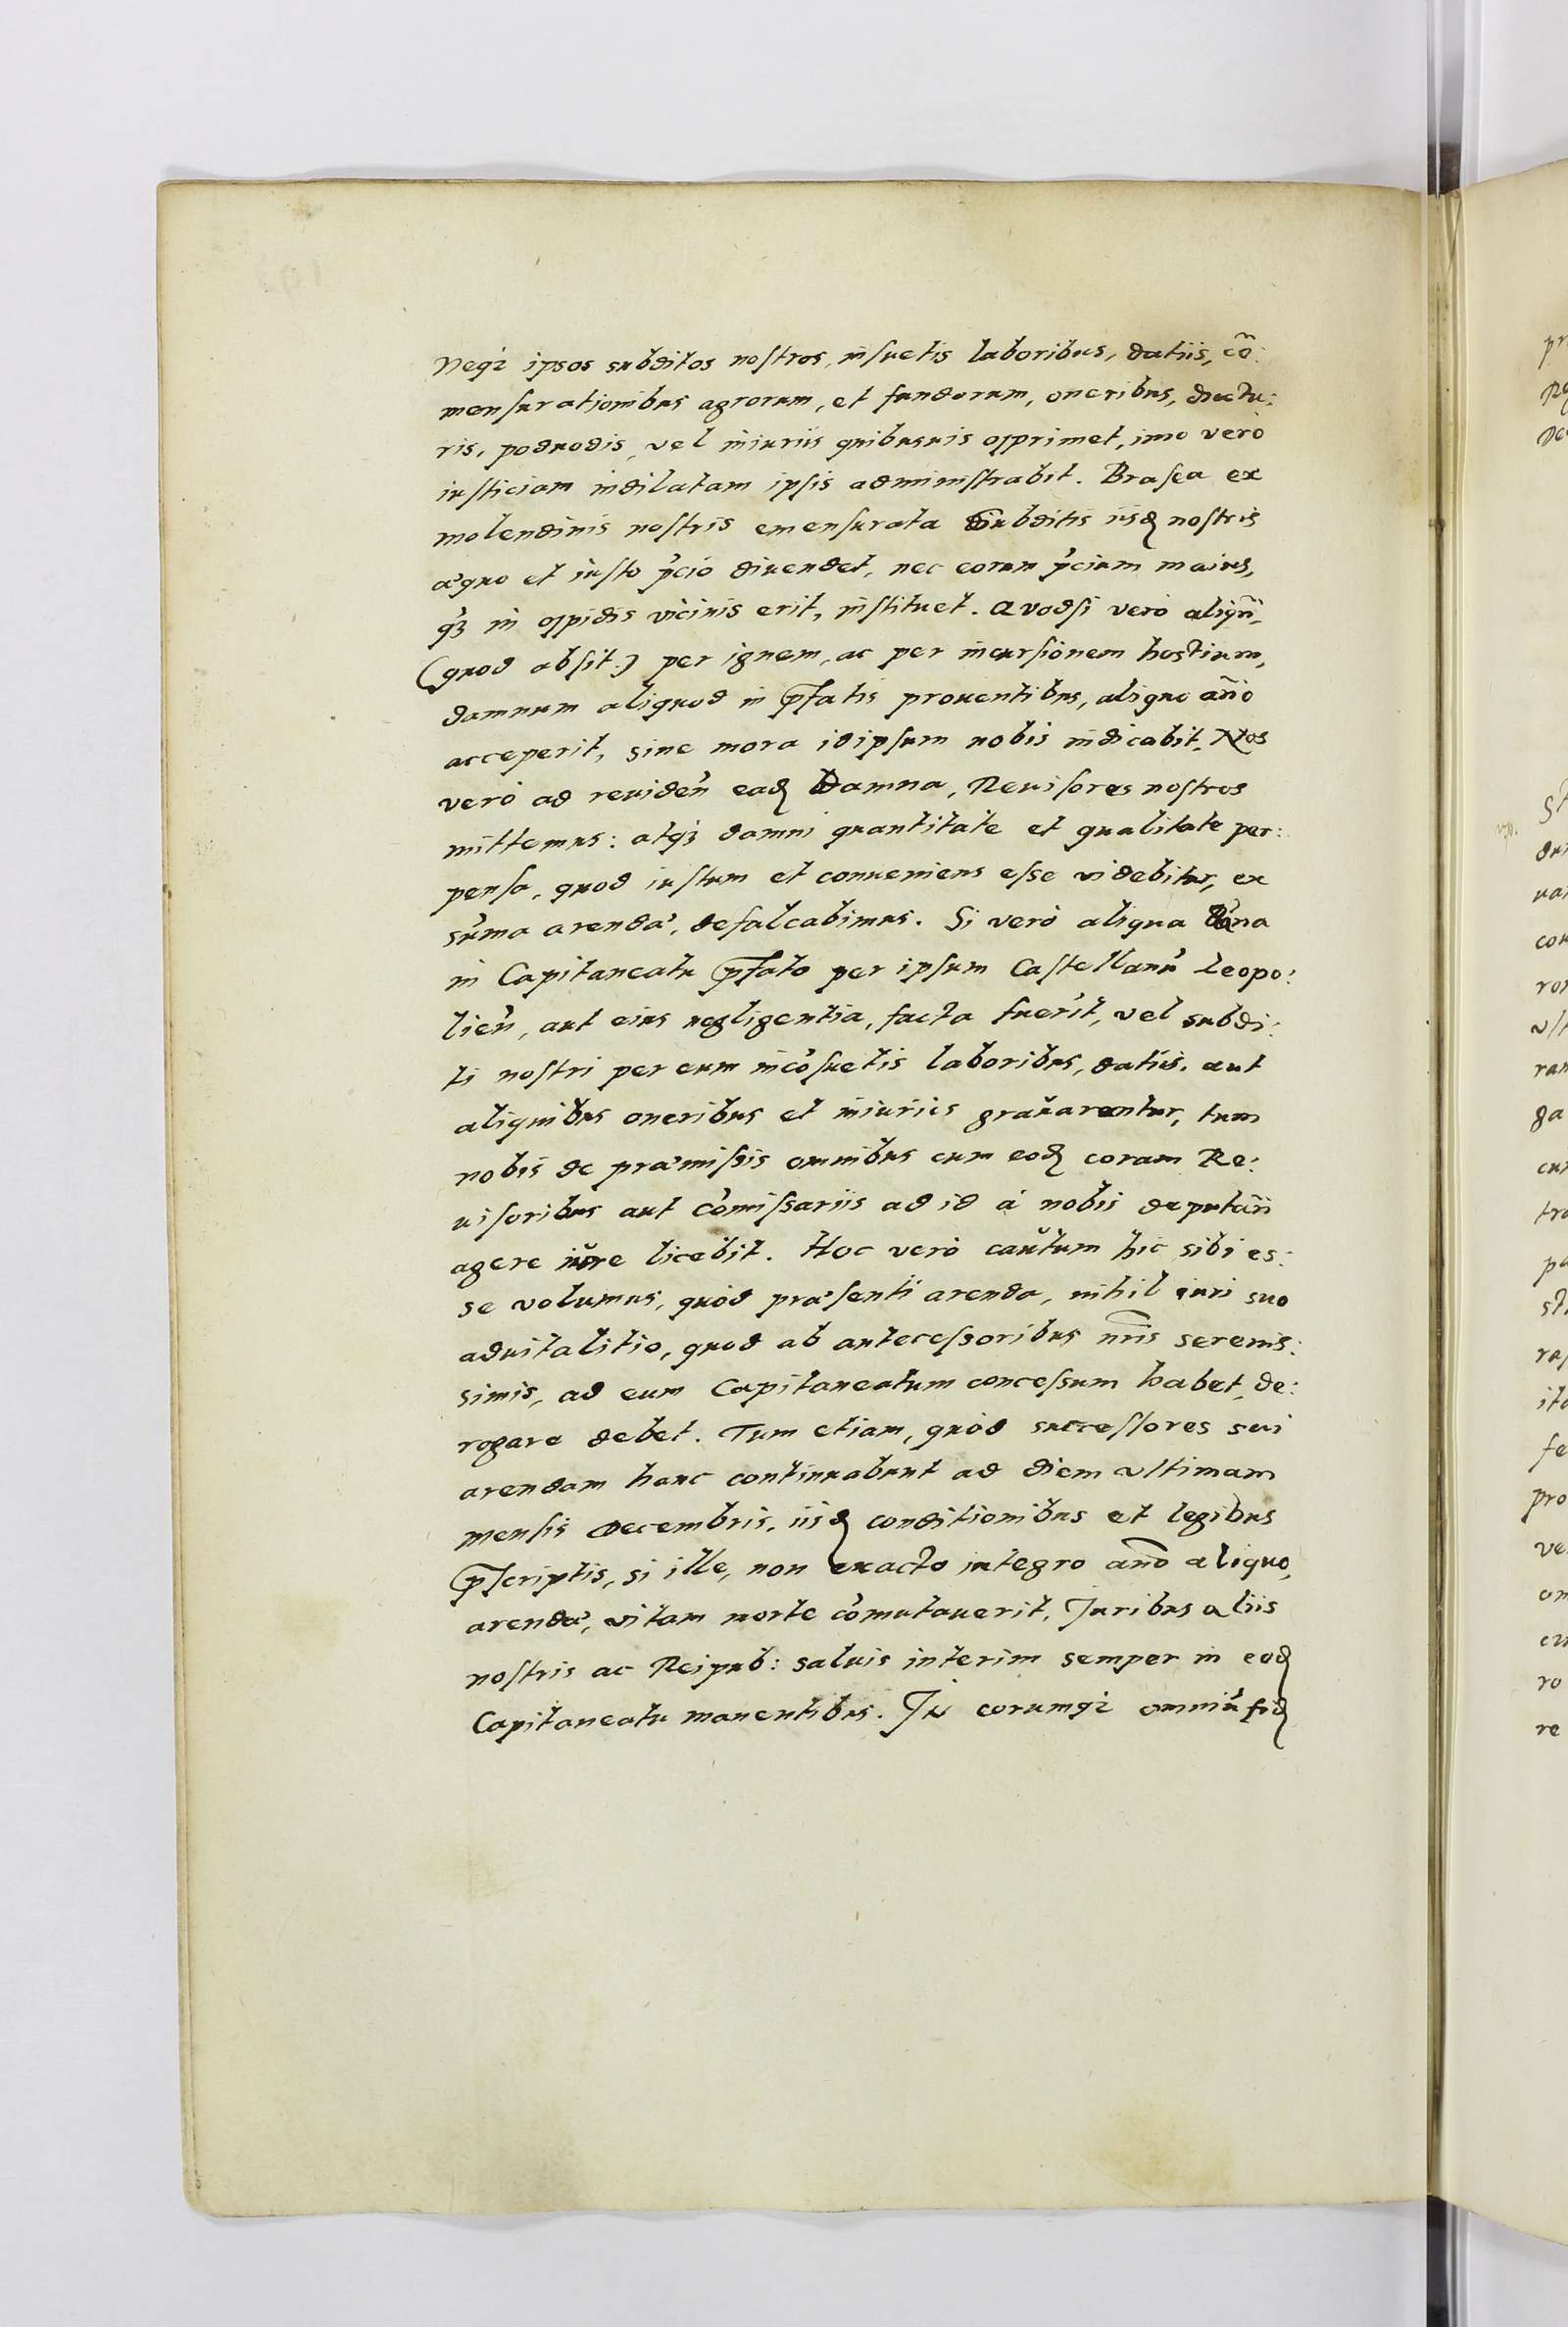 Neqz ipsos subditos nostros, insuetis laboribus, datiis, cõ:
mensurationibus agrorum, et fundorum, oneribus, ductu:
ris, podvodis, vel iniuriis quibusuis opprimet, imo verò
iusticiam indilatam ipsis administrabit. Brasea ex
molendinis nostris emensurata subditis iisdẽ nostris
æquo et iusto p̃cio diuendet, nec eorum p̃cium maius,
q̃3 in oppidis vicinis erit, instituet. Quodsi verò aliqñ,
(quod absit.) per ignem, ac per incursionem hostium,
damnum aliquod in p̃fatis prouentibus, aliquo año
acceperit, sine mora idipsum nobis indicabit. Nos
verò ad reuideñ eadẽ Damna, Reuisores nostros
mittemus: atq3 damni quantitate et qualitate per:
pensa, quod iustum et conueniens esse videbitur, ex
sũma arendæ, defalcabimus. Si verò aliqua dãna
in Capitaneatu p̃fato per ipsum Castellanũ Leopo:
lień, aut eius negligentia, facta fuerit, vel subdi:
ti nostri per eum incõsuetis laboribus, datiis, aut
aliquibus oneribus et iniuriis grauarentur, tum
nobis de præmissis omnibus cum eodẽ coram Re:
uisoribus aut cõmissariis ad id à nobis deputañ
agere iure licebit. Hoc verò cautum hic sibi es:
se volumus, quòd præsenti arenda, nihil iuri suo
aduitalitio, quod ab antecessoribus nr̃is serenis:
simis, ad eum Capitaneatum concessum habet, de:
rogare debet. Tum etiam, quòd successores sui
arendam hanc continuabunt ad diem ultimam
mensis Decembris, iisdẽ conditionibus et legibus
p̃scriptis, si ille, non exacto integro año aliquo,
arendæ, vitam morte cõmutauerit, Juribus aliis
nostris ac Reipub: saluis interim semper in eodẽ
Capitaneatu manentibus. In eorumqz omniũ fidẽ